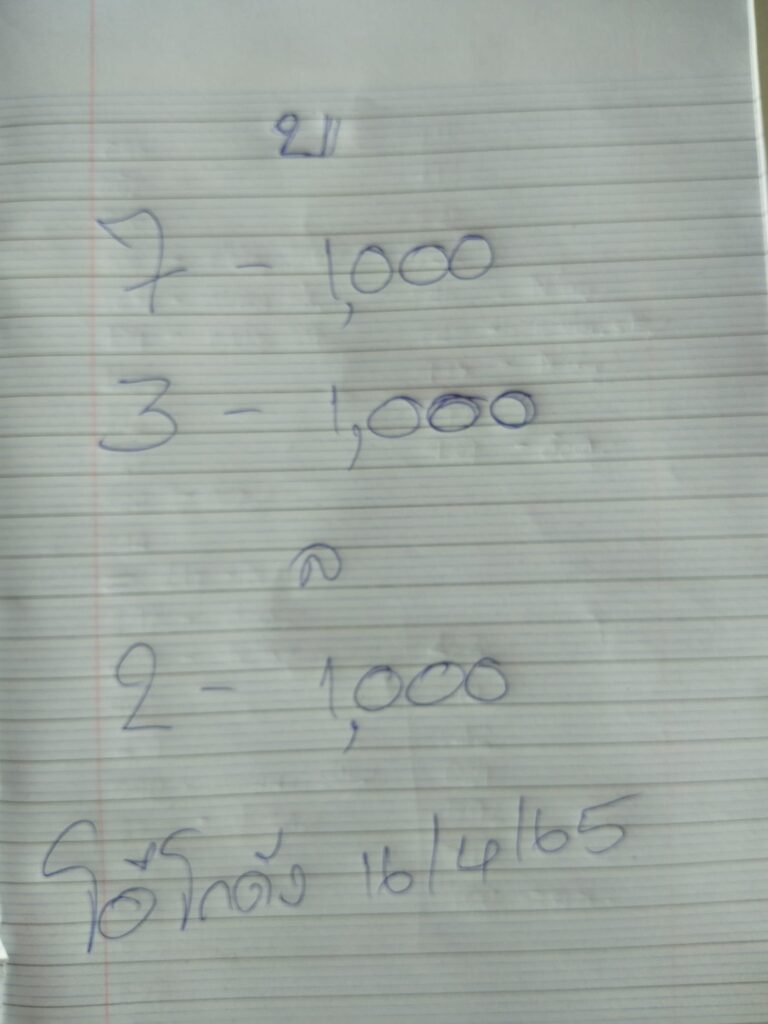 บ
7 - 1,000
3 - 1,000
ล
2 - 1,000
โอ๋โกดัง 16/4/65